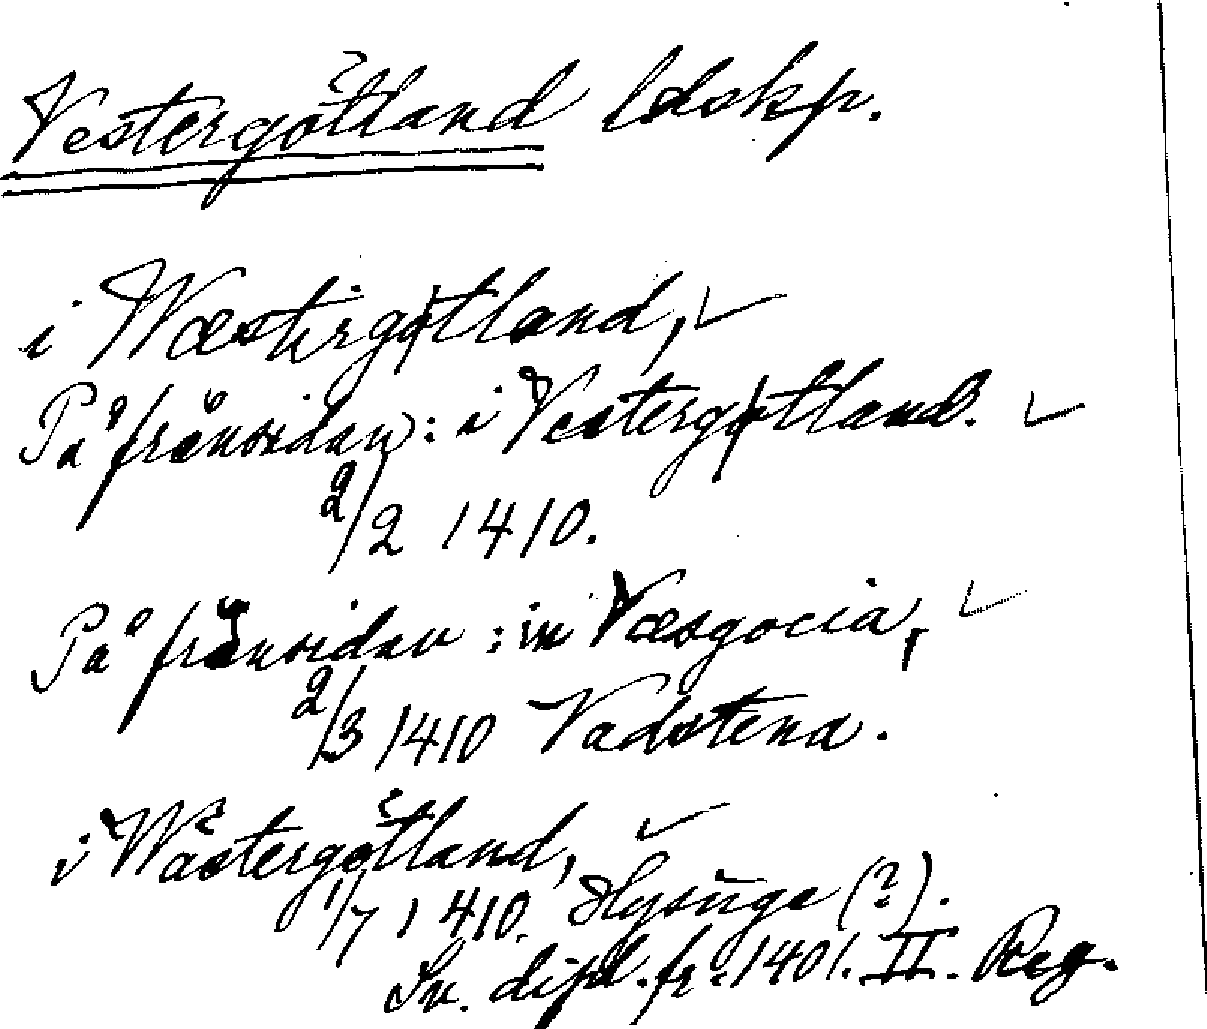 Vestergötland ldskp.
i Wæstirgøtland,
På frånsidan: i Vestergøtland.
2/2 1410.
På frånsidan: in Væsgocia,
2/3 1410 Vadstena.
i Wästergötland,
1/7 1410. (?).
Sv. dipl. fr. 1401. II. Reg.